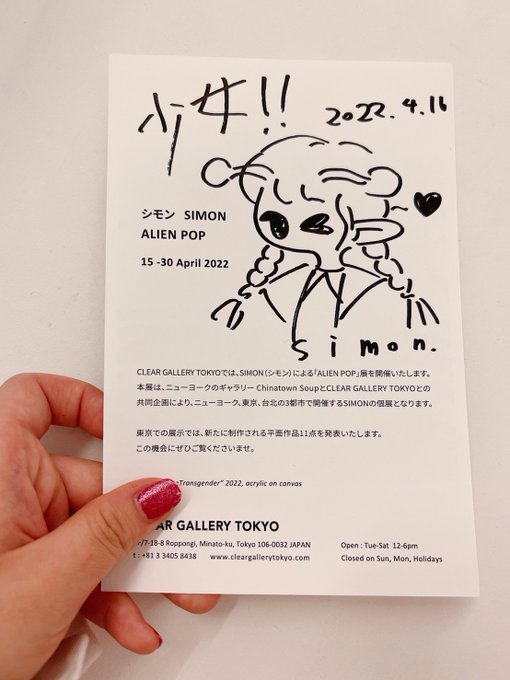 !! 2022.4.16
シモン SIMON
ALIEN POP
15 -30 April 2022
simon.
CLEAR GALLERY TOKYOでは、SIMON（シモン）による「ALIEN POP」展を開催いたします。
本展は、ニューヨークのギャラリー Chinatown SoupとCLEAR GALLERY TOKYOとの
共同企画により、ニューヨーク、東京、台北の3都市で開催するSIMONの個展となります。
東京での展示では、新たに制作される平面作品11点を発表いたします。
この機会にぜひご覧くださいませ。
Transgender” 2022, acrylic on canvas
EAR GALLERY TOKYO
7-18-8 Roppongi, Minato-ku, Tokyo 106-0032 JAPAN Open : Tue-Sat 12-6pm
t : +81 3 3405 8438 www.cleargallerytokyo.com Closed on Sun, Mon, Holidays